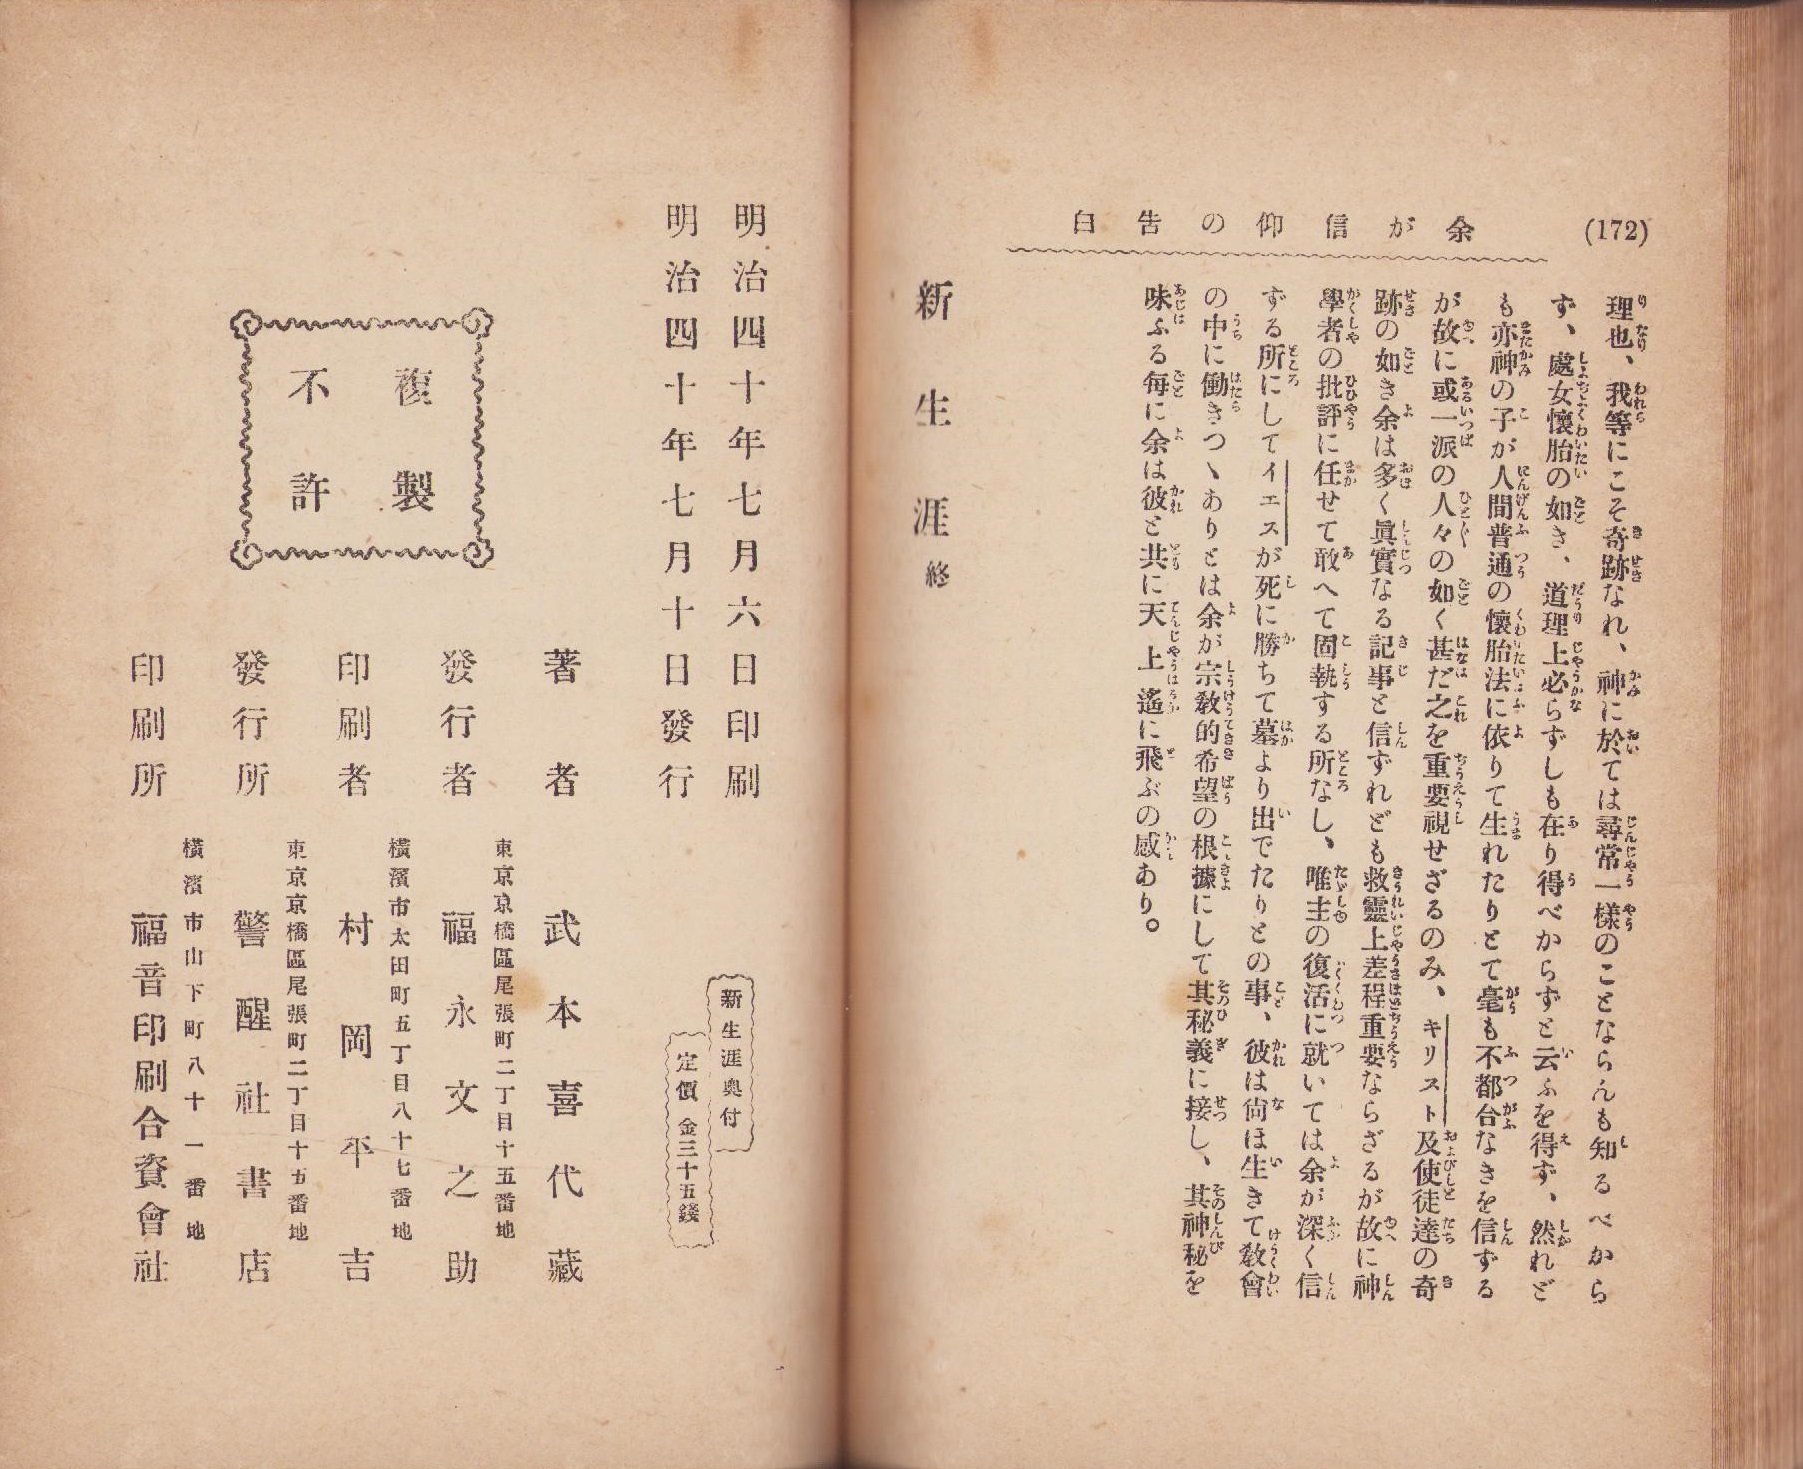 (172)
余が信仰の告白
理也、我等にこそ奇跡なれ、神に於ては尋常一樣のことならんも知るべから
ず、處女懷胎の如き、道理上必らずしも在り得べからずと云ふを得ず、然れど
も亦神の子が人間普通の懷胎法に依りて生れたりとて毫も不都合なきを信ずる
が故に或一派の人々の如く甚だ之を重要視せざるのみ、キリスト及使徒達の奇
跡の如き余は多く眞實なる記事と信ずれども救靈上差程重要ならざるが故に神
學者の批評に任せて敢へて固執する所なし、唯主の復活に就いては余が深く信
ずる所にしてイエスが死に勝ちて墓より出でたりとの事、彼は尙ほ生きて敎會
の中に働きつヽありとは余が宗敎的希望の根據にして其秘義に接し、其神秘を
味ふる每に余は彼と共に天上遙に飛ぶの感あり。
新生涯終
明治四十年七月六日印刷
明治四十年七月十日發行
新生涯奧付
定價金三十五錢
複製
不許
著者 武本喜代藏
東京京橋區尾張町二丁目十五番地
發行者 福永文之助
橫濱市太田町五丁目八十七番地
印刷者 村岡平吉
東京京橋區尾張町二丁目十五番地
發行所 警醒社書店
橫濱市山下町八十一番地
印刷所 福音印刷合資會社